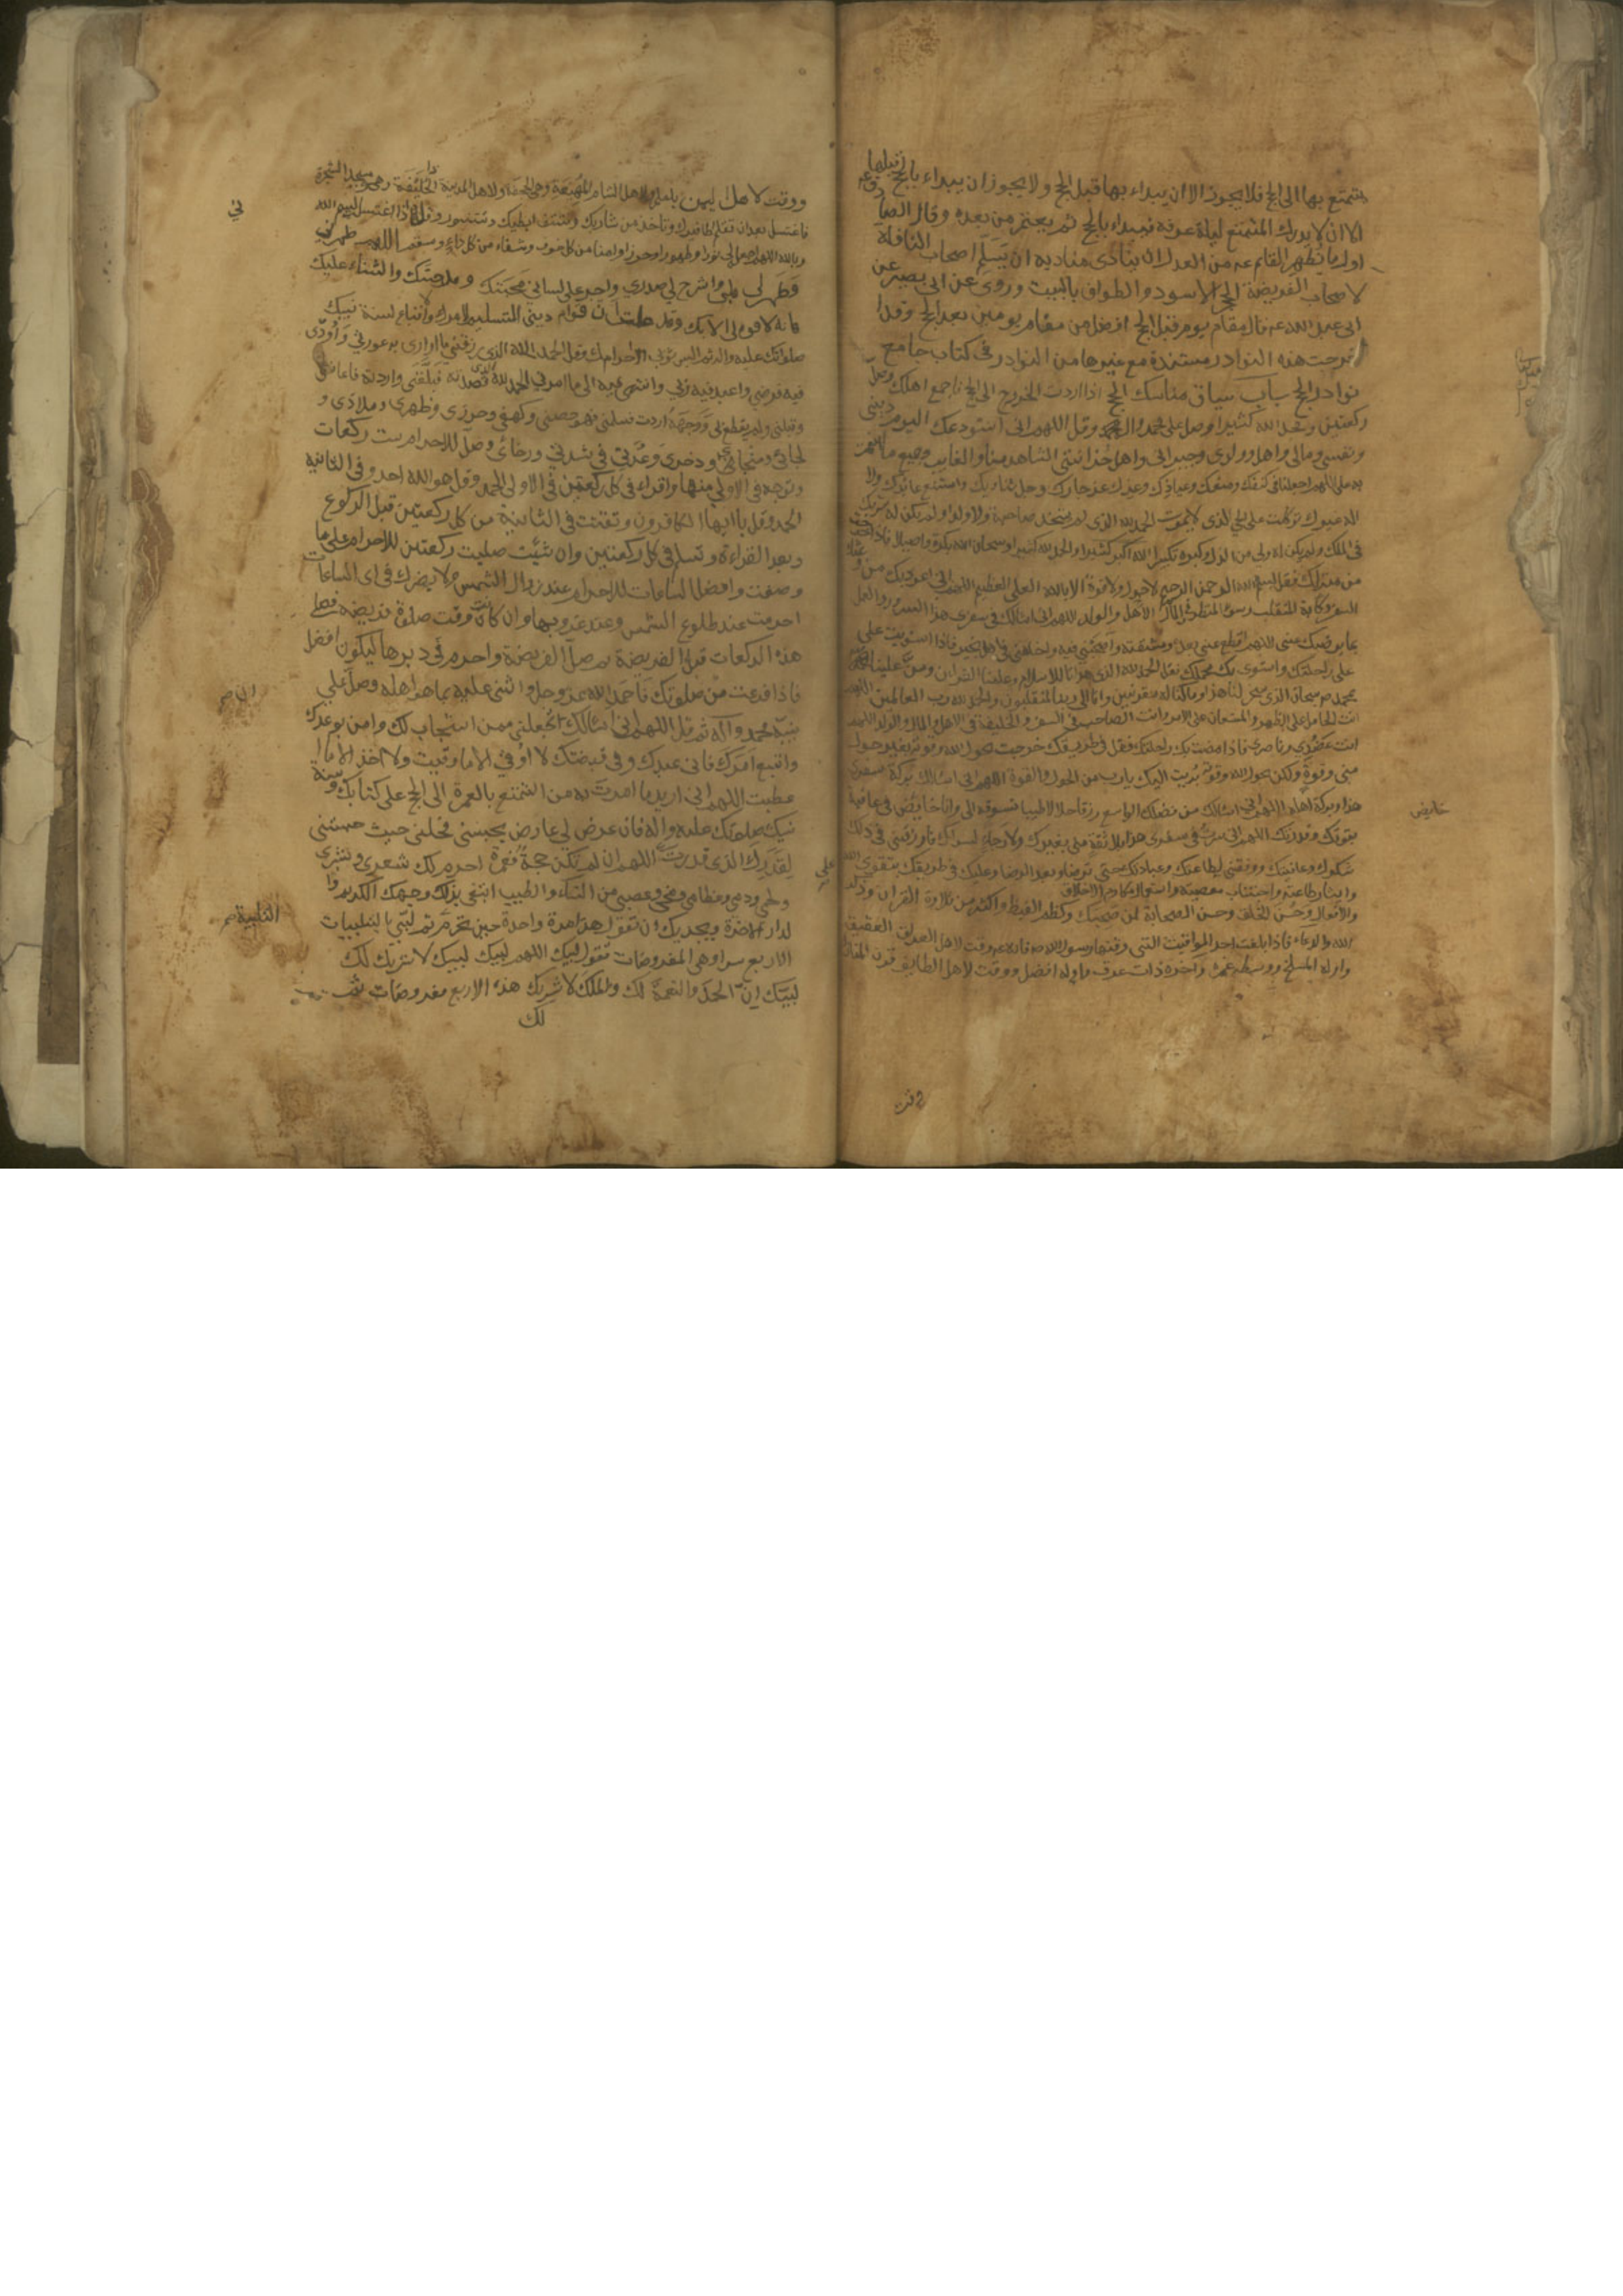 يتمتع بها الى الحج فلا يجوز الا ان يبداء بها قبل الحج ولا يجوز ان يبداء بالحج قبلها
الا ان لا يدرك المتمتع ليلة عرفة فيبداء بالحج ثم يعتمر من بعده وقال الصادق ع
اول ما يظهر القائم عم من العدل ان ينادى مناديه ان يسلم اصحاب النافلة
لاصحاب الفريضة الحجر الاسود والطواف بالبيت وروى عن ابى بصير عن
ابى عبد الله عم قال مقام يوم قبل الحج افضل من مقام يومين بعد الحج وقد
اخرجت هذه النوادر مستندة مع غيرها من النوادر فى كتاب جامع
نوادر الحج باب سياق مناسك الحج اذا اردت الخروج الى الحج فاجمع اهلك وصل
ركعتين ومجد الله كثيرا وصل على محمد وال محمد وقل اللهم انى استودعك اليوم دينى
ونفسى ومالى واهلى وولدى وجيرانى واهل حزانتى الشاهد منا والغايب وجميع ما انعمت
به على اللهم اجعلنا فى كنفك ومنعك وعياذك وعزك عز جارك وجل ثناؤك وامتنع عائذك ولا
اله غيرك توكلت على الحى الذى لا يموت الحمد لله الذى لم يتخذ صاحبة ولا ولدا ولم يكن له شريك
فى الملك ولم يكن له ولى من الذل وكبره تكبيرا الله اكبر كبيرا والحمد لله كثيرا وسبحان الله بكرة واصيلا فاذا خرجت
من منزلك فقل بسم الله الرحمن الرحيم لا حول ولا قوة الا بالله العلى العظيم اللهم انى اعوذ بك من وعثاء
السفر وكابة المنقلب وسوء المنظر فى الاهل والمال والولد اللهم انى اسئالك فى سفرى هذا السرور والعمل
بما يرضيك عنى اللهم اقطع عنى بعده ومشقته واصحبنى فيه واخلفنى فى اهلى بخير فاذا استويت على
على راحلتك واستوى بك محملك فقل الحمد لله الذى هدانا للاسلام وعلمنا القرآن ومن علينا
بمحمد صم سبحان الذى سخر لنا هذا وما كنا له مقرنين وانا الى ربنا لمنقلبون والحمد لله رب العالمين اللهم
انت الحامل على الظهر والمستعان على الامر وانت الصاحب فى السفر والخليفة فى الاهل والمال والولد اللهم
انت عضدى وناصرى فاذا مضت بك راحلتك فقل فى طريقك خرجت بحول الله وقوته بغير حول
منى وقوة ولكن بحول الله وقوته برئت اليك يارب من الحول والقوة اللهم انى اسئالك بركة سفرى
هذا وبركة اهله اللهم انى اسئالك من فضلك الواسع رزقا حلالا طيبا تسوقه الى وانا خايض فى عافية
بقوتك وقدرتك اللهم انى سرت فى سفرى هذا بلا ثقة منى بغيرك ولا رجاء لسواك فارزقنى فى ذلك
شكرك وعافيتك ووفقنى لطاعتك وعبادتك حتى ترضا وبعد الرضا وعليك فى طريقك بتقوى الله
وايثار طاعته واجتناب معصيته واستعمال مكارم الاخلاق
والافعال وحسن الخلق وحسن الصحابة لمن صحبك وكظم الغيظ واكثر من تلاوة القرآن وذكر
الله والدعاء فاذا بلغت احد المواقيت التى وقتها رسول الله صم فانه عم وقت لاهل العراق العقيق
واوله المسلخ ووسطه غمرة واخره ذات عرق واوله افضل ووقت لاهل الطايف قرن المنازل
خايض
ووقت لاهل اليمن يلملم ولاهل الشام المهيعة وهى الجحفة ولاهل المدينة ذا الحليفة وهى مسجد الشجرة
فاغتسل بعد ان تقلم اظافيرك وتاخذ من شاربك وتنتف ابطيك وتتنور وقل اذا اغتسلت بسم الله
وبالله اللهم اجعله لى نورا وطهورا وحرزا وامنا من كل خوف وشفاء من كل داء وسقم اللهم طهرنى
وطهر لى قلبى واشرح لى صدرى واجر على لسانى محبتك ومدحتك والثناء عليك
فانه لا قوة لى الا بك وقد علمت ان قوام دينى التسليم لامرك واتباع لسنة نبيك
صلواتك عليه واله ثم البس ثوبى الاحرامك وقل الحمد لله الذى رزقنى ما اوارى به عورتى واودى
فيه فرضى واعبد فيه ربى وانتهى فيه الى ما امرنى الحمد لله الذى قصدته فبلغنى واردته فاعاننى
وقبلنى ولم يقطع بى ووجهه اردت فسلمنى فهو حصنى وكهفى وحرزى وظهرى وملاذى و
لجائى ومنجائى وذخرى وعدتى فى شدتى ورخائى وصل للاحرام ست ركعات
وتوجه فى الاولى منها واقراء فى كل ركعتين فى الاولى الحمد وقل هو الله احد وفى الثانية
الحمد وقل يا ايها الكافرون وتقنت فى الثانية من كل ركعتين قبل الركوع
وبعد القراءة وتسلم فى كل ركعتين وان شئت صليت ركعتين للاحرام على ما
وصفت وافضل الساعات للاحرام عند زوال الشمس ولا يضرك فى اى الساعات
احرمت عند طلوع الشمس وعند غروبها وان كانت وقت صلوة فريضة فصل
هذه الركعات قبل الفريضة ثم صل الفريضة واحرم فى دبرها ليكون افضل
فاذا فرغت من صلوتك فاحمد الله عز وجل واثنى عليه بما هو اهله وصل على
نبيه محمد وآله ثم قل اللهم انى اسئالك ان تجعلنى ممن استجاب لك وامن بوعدك
واتبع امرك فانى عبدك وفى قبضتك لا اوقى الا ما وقيت ولا اخذ الا ما
اعطيت اللهم انى اريد ما امرت به من التمتع بالعمرة الى الحج على كتابك وسنة
نبيك صلوتك عليه واله فان عرض لى عارض يحبسنى فحلنى حيث حبستنى
لقدرك الذى قدرت على اللهم ان لم يكن حجة فعمرة احرم لك شعرى وبشرى
ولحمى ودمى وعظامى ومخى وعصبى من النساء والطيب ابتغى بذلك وجهك الكريم و
الدار الاخرة ويجزيك ان تقول هذا مرة واحدة حين تحرم ثم لبى بالتلبيات
الاربع سرا وهى المفروضات تقول لبيك اللهم لبيك لبيك لا شريك لك
لبيك ان الحمد والنعمة لك والملك لا شريك هذه الاربع مفروضات
لك
التلبية